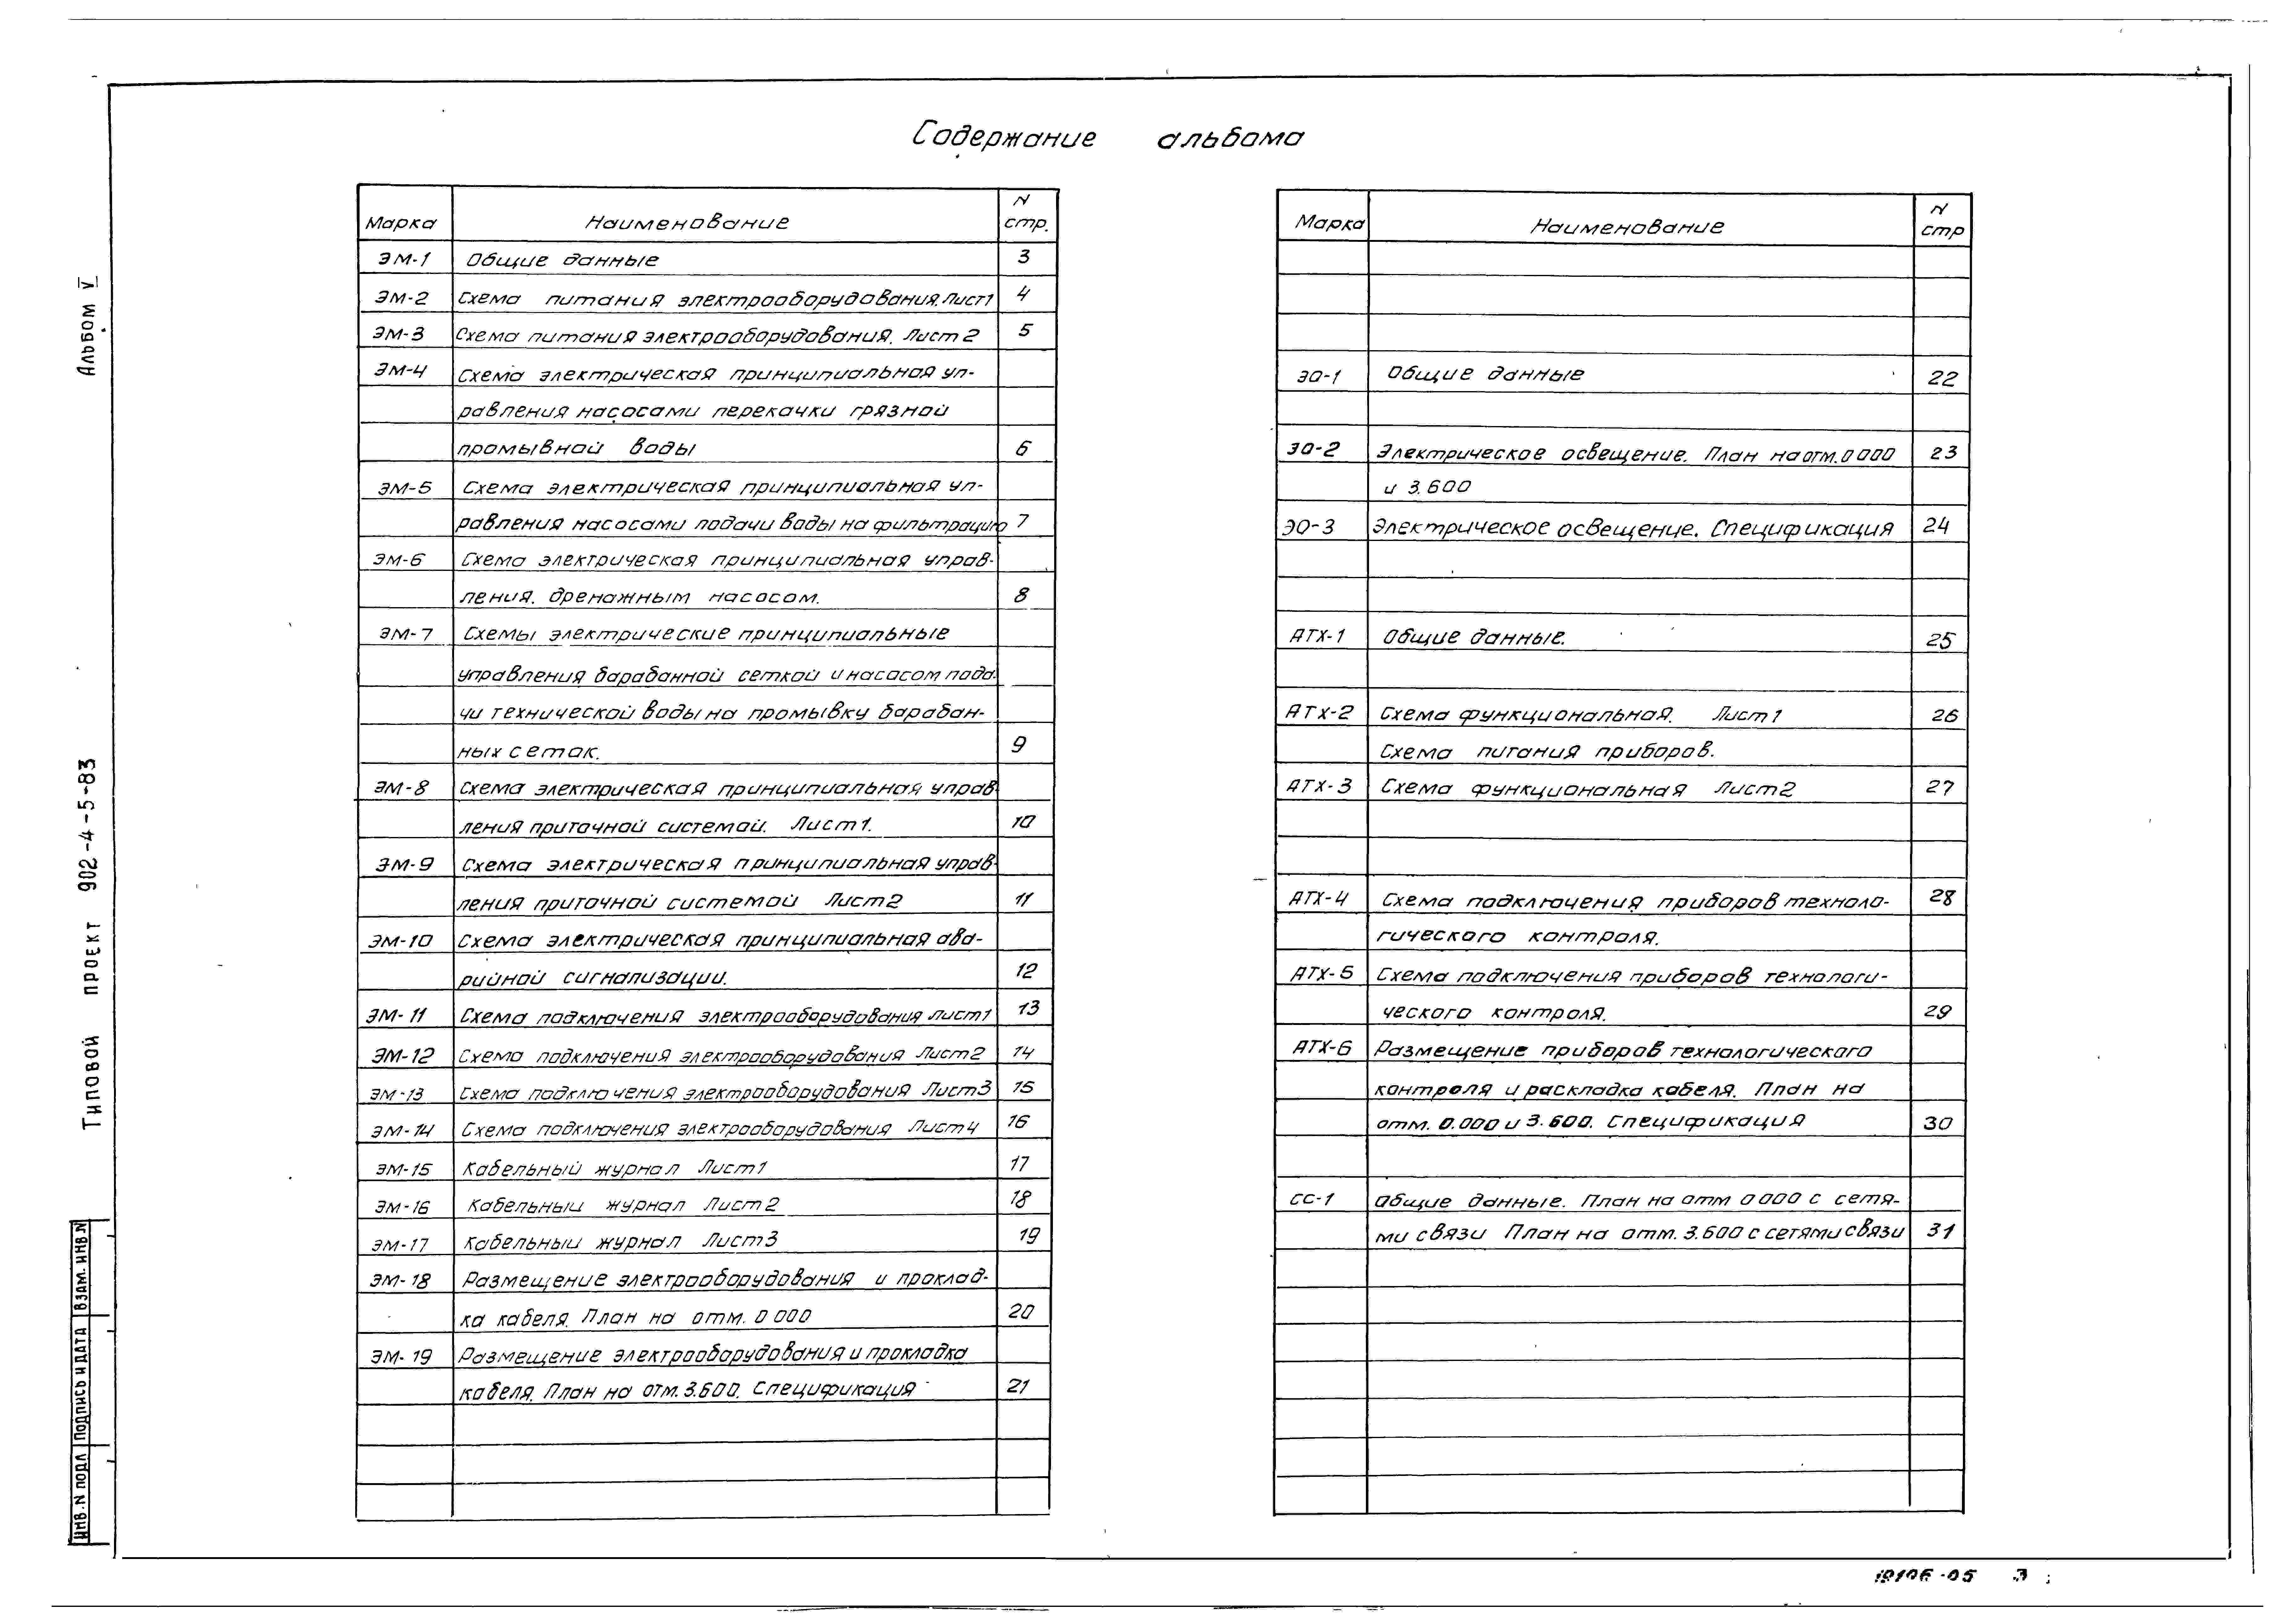 Содержание альбома
Марка Наименование N стр.
ЭМ-1 Общие данные 3
ЭМ-2 Схема питания электрооборудования. Лист 1 4
ЭМ-3 Схема питания электрооборудования. Лист 2 5
ЭМ-4 Схема электрическая принципиальная уп-
равления насосами перекачки грязной
промывной воды 6
ЭМ-5 Схема электрическая принципиальная уп-
равления насосами подачи воды на фильтрацию 7
ЭМ-6 Схема электрическая принципиальная управ-
ления. дренажным насосом. 8
ЭМ-7 Схемы электрические принципиальные
управления барабанной сеткой и насосом пода-
чи технической воды на промывку барабан-
ных сеток. 9
ЭМ-8 Схема электрическая принципиальная управ-
ления приточной системой. Лист 1. 10
ЭМ-9 Схема электрическая принципиальная управ-
ления приточной системой Лист 2 11
ЭМ-10 Схема электрическая принципиальная ава-
рийной сигнализации. 12
ЭМ-11 Схема подключения электрооборудования Лист 1 13
ЭМ-12 Схема подключения электрооборудования Лист 2 14
ЭМ-13 Схема подключения электрооборудования Лист 3 15
ЭМ-14 Схема подключения электрооборудования Лист 4 16
ЭМ-15 Кабельный журнал Лист 1 17
ЭМ-16 Кабельный журнал Лист 2 18
ЭМ-17 Кабельный журнал Лист 3 19
ЭМ-18 Размещение электрооборудования и проклад-
ка кабеля. План на отм. 0 000 20
ЭМ-19 Размещение электрооборудования и прокладка
кабеля. План на отм. 3.600. Спецификация 21
Марка Наименование N стр
ЭО-1 Общие данные 22
ЭО-2 Электрическое освещение. План на отм. 0 000 23
и 3.600
ЭО-3 Электрическое освещение. Спецификация 24
АТХ-1 Общие данные. 25
АТХ-2 Схема функциональная. Лист 1 26
Схема питания приборов.
АТХ-3 Схема функциональная Лист 2 27
АТХ-4 Схема подключения приборов техноло- 28
гического контроля.
АТХ-5 Схема подключения приборов технологи-
ческого контроля. 29
АТХ-6 Размещение приборов технологического
контроля и раскладка кабеля. План на
отм. 0.000 и 3.600. Спецификация 30
СС-1 Общие данные. План на отм 0 000 с сетя-
ми связи План на отм. 3.600 с сетями связи 31
Альбом V
Типовой проект 902-4-5-83
ИНВ.N ПОДЛ ПОДПИСЬ И ДАТА ВЗАМ. ИНВ.N
19106-05 3